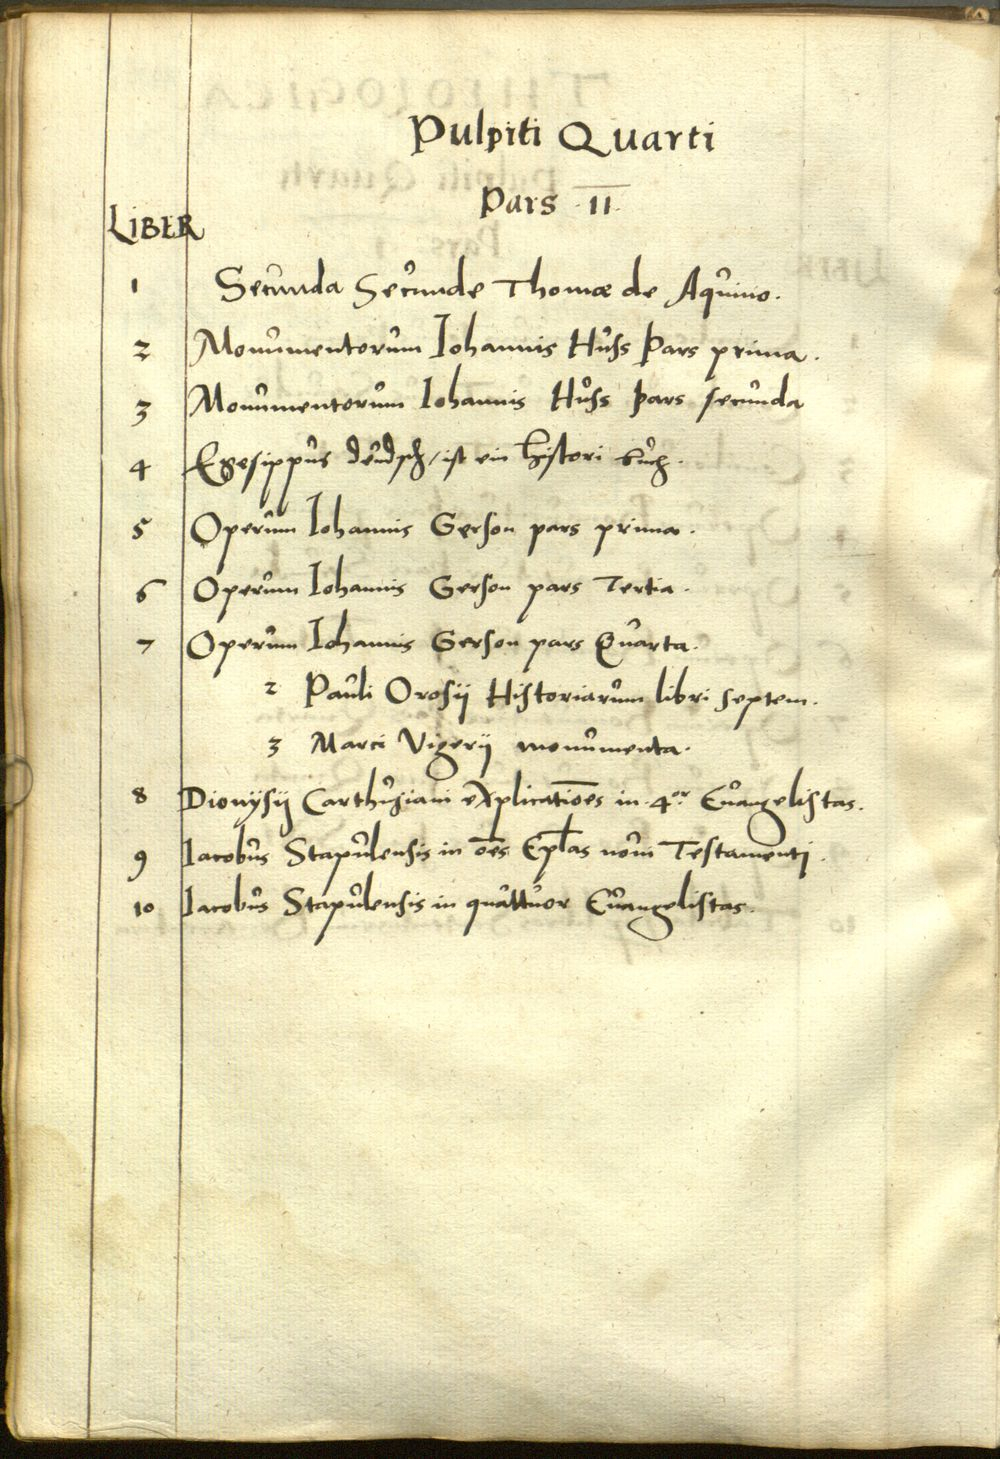 Pulpiti Quarti
Pars II
LIBER
1 Secunda Secunde Thomæ de Aquino.
2 Monumentorum Iohannis Huss Pars prima.
3 Monumentorum Iohannis Huss pars secunda
4 Egesippus deudsch / ist ein histori buch.
5 Operum Iohannis Gerson pars prima.
6 Operum Iohannis Gerson pars Tertia.
7 Operum Iohannis Gerson pars Quarta.
2 Pauli Orosij Historiarum libri septem.
3 Marci Vigerij monumenta.
8 Dionysij Carthusiani explicatiōes in 4or Euangelistas.
9 Iacobus Stapulensis in oēs Epl̄as noui Testamenti.
10 Iacobus Stapulensis in quattuor Euangelistas.